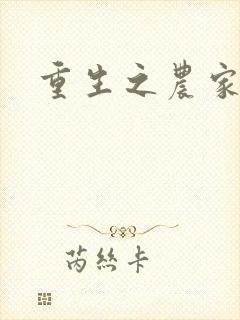 重生之農家
芮絲卡